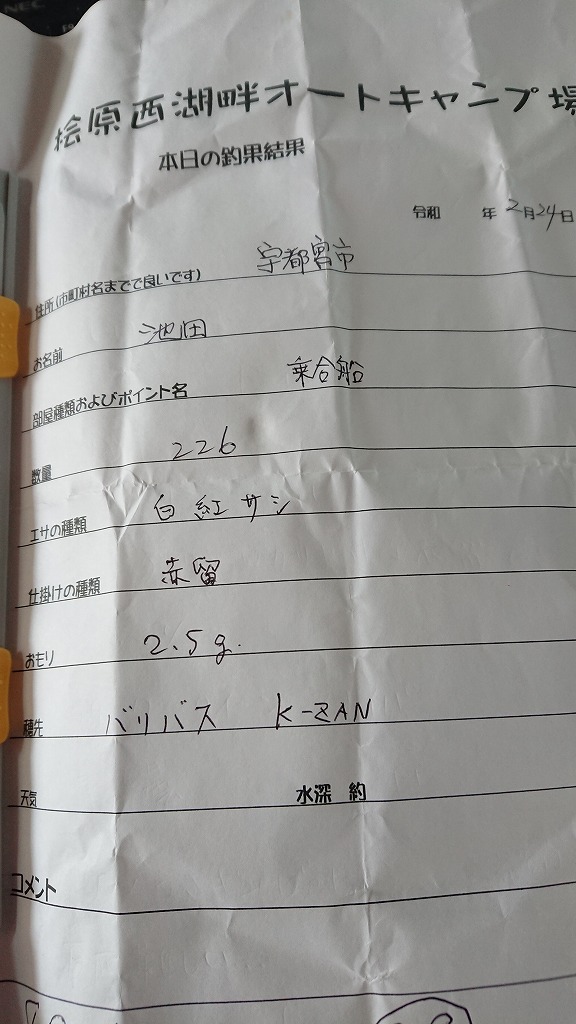 NEC
桧原西湖畔オートキャンプ場
本日の釣果結果
令和 年 2月24日
住所(市町村名までで良いです) 宇都宮市
お名前 池田
部屋種類およびポイント名 乗合船
数量 226
エサの種類 白紅サシ
仕掛けの種類 赤留
おもり 2.5g.
穂先 バリバス K-ZAN
天気 水深 約
コメント